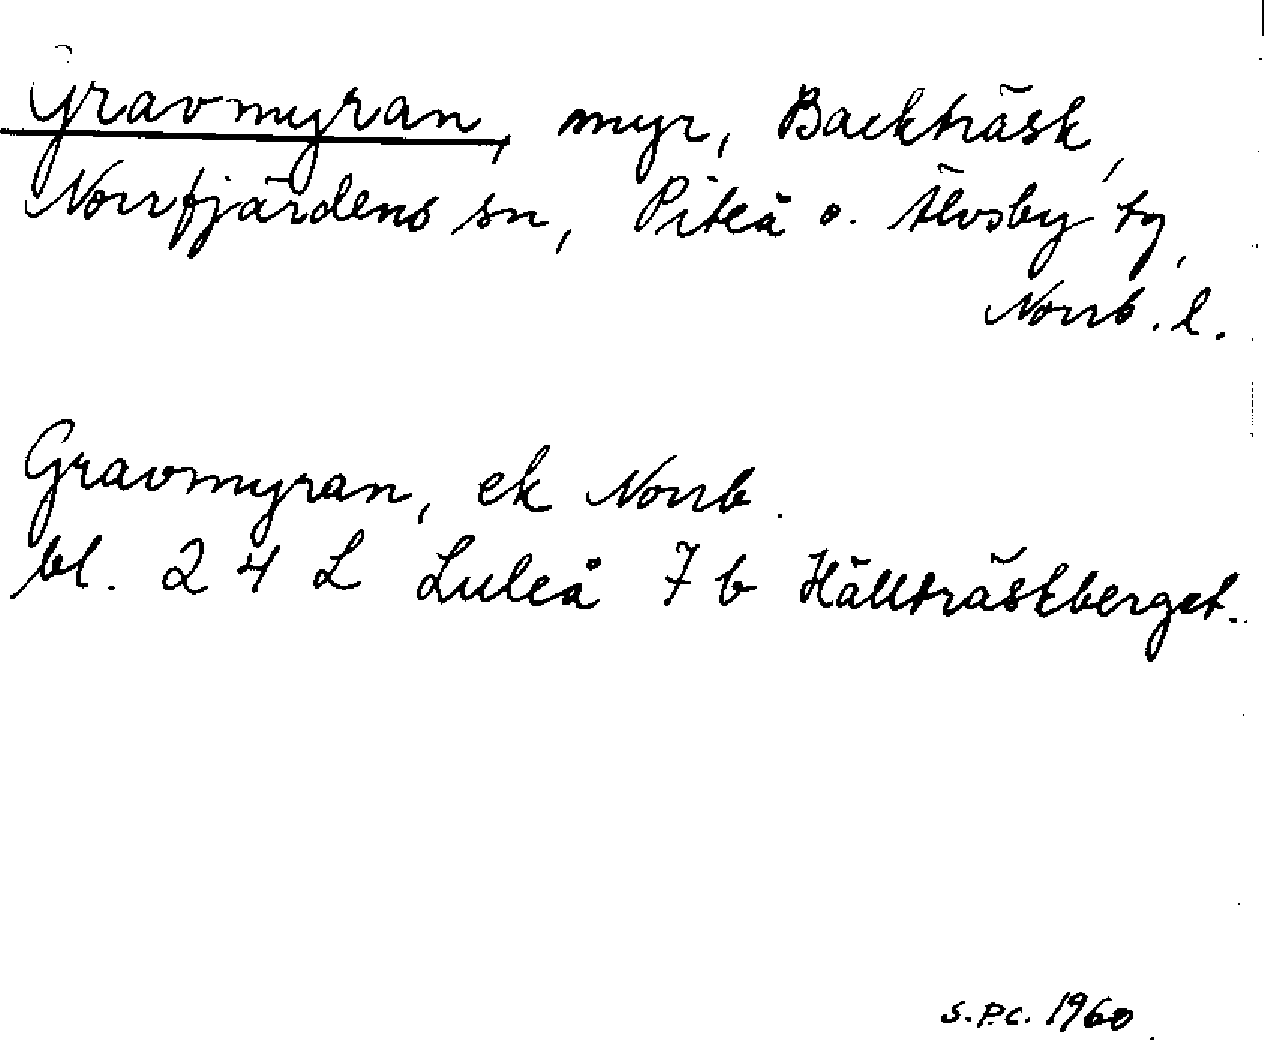 Gravmyran, myr, Backträsk,
Norrfjärdens sn, Piteå o. Älvsby tg,
Norrb. l.
Gravmyran, ek Norrb.
bl. 24 L Luleå 7 b Hällträskberget.
S.P.C. 1960